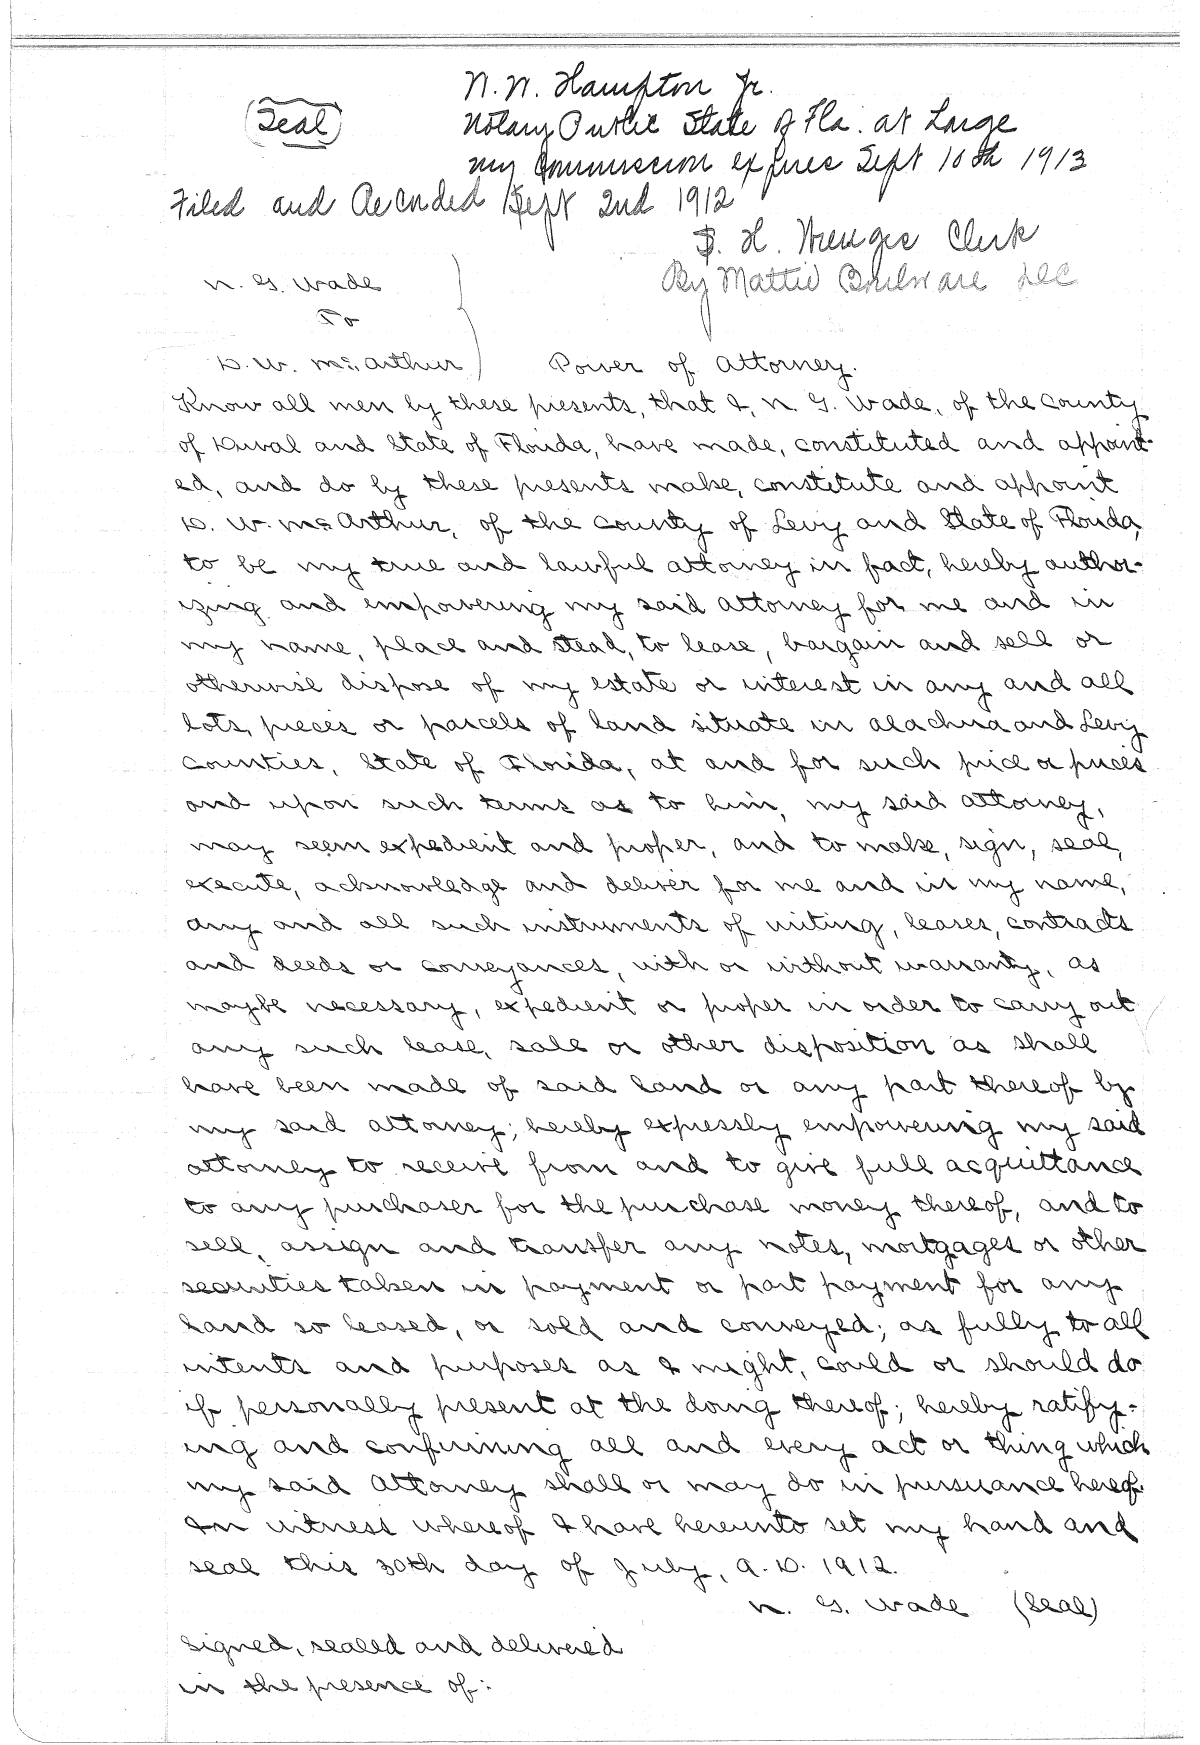 N. N. Hampton Jr.
(Seal) Notary Public State of Fla. at Large
my Commission expires Sept 10th 1913
Filed and Recorded Sept 2nd 1912
H. Clerk
By Mattie DC
N. G. Wade
To
D. W. McArthur ) Power of Attorney.
Know all men by these presents, that I, N. G. Wade, of the County
of Duval and State of Florida, have made, constituted and appoint-
ed, and do by these presents make, constitute and appoint
D. W. McArthur, of the County of Levy and State of Florida,
to be my true and lawful attorney in fact, hereby author-
izing and empowering my said attorney for me and in
my name, place and stead, to lease, bargain and sell or
otherwise dispose of my estate or interest in any and all
lots, pieces or parcels of land situate in Alachua and Levy
Counties, State of Florida, at and for such price or prices
and upon such terms as to him, my said attorney,
may seem expedient and proper, and to make, sign, seal,
execute, acknowledge and deliver for me and in my name,
any and all such instruments of writing, leases, contracts
and deeds or conveyances, with or without warranty, as
maybe necessary, expedient or proper in order to carry out
any such lease, sale or other disposition as shall
have been made of said land or any part thereof by
my said attorney; hereby expressly empowering my said
attorney to receive from and to give full acquittance
to any purchaser for the purchase money thereof, and to
sell, assign and transfer any notes, mortgages or other
securities taken in payment or part payment for any
land so leased, or sold and conveyed; as fully to all
intents and purposes as I might, could or should do
if personally present at the doing thereof; hereby ratify-
ing and confirming all and every act or thing which
my said Attorney shall or may do in pursuance hereof.
In witness whereof I have hereunto set my hand and
seal this 30th day of July, A. D. 1912.
N. G. Wade (Seal)
Signed, sealed and delivered
in the presence of: